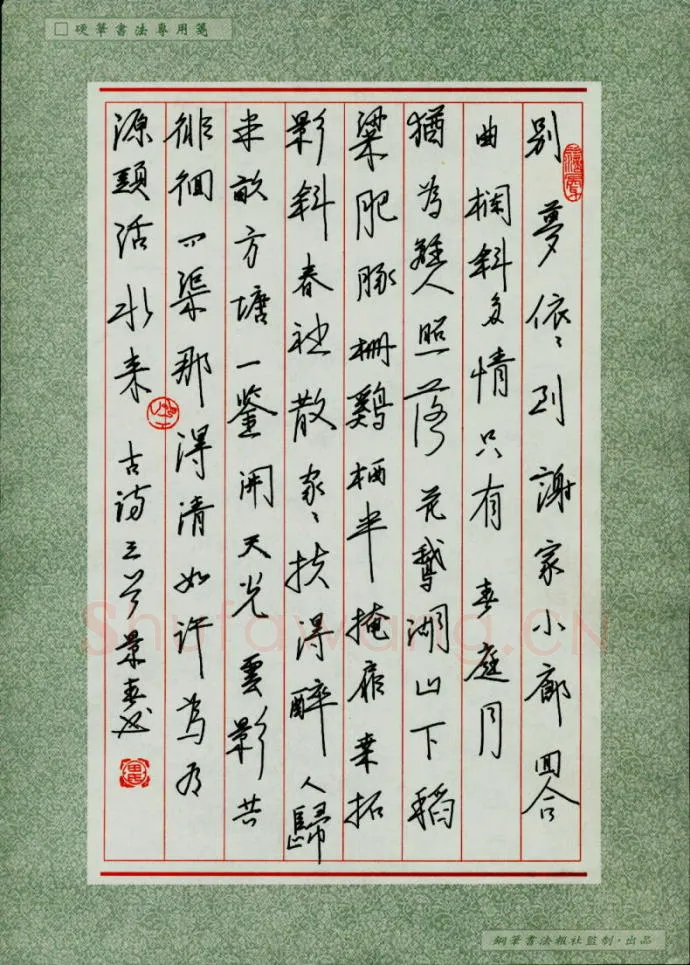 硬筆書法專用箋
别夢依〻到謝家小廊回合
曲欄斜多情只有春庭月
猶為離人照落花鵝湖山下稻
粱肥豚柵鷄栖半掩扉桑拓
影斜春社散家〻扶得醉人歸
半畝方塘一鉴開天光雲影共
徘徊问渠那得清如许為有
源頭活水来 古诗三首 景春书
Shufawang.CN
鋼筆書法報社監制·出品